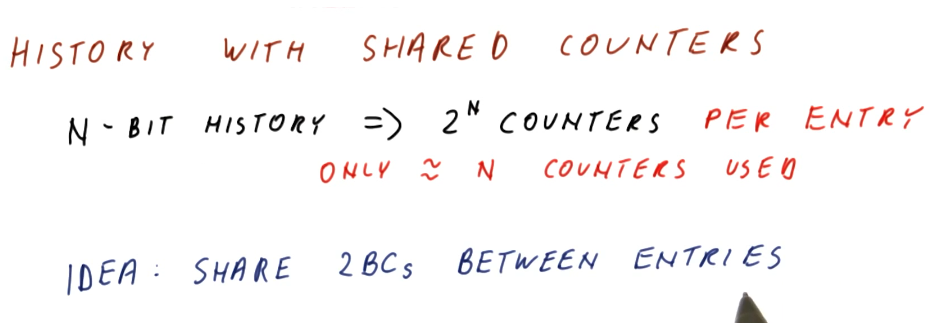 HISTORY WITH SHARED COUNTERS
N-BIT HISTORY => 2^N COUNTERS PER ENTRY
ONLY ≈ N COUNTERS USED
IDEA: SHARE 2BCs BETWEEN ENTRIES